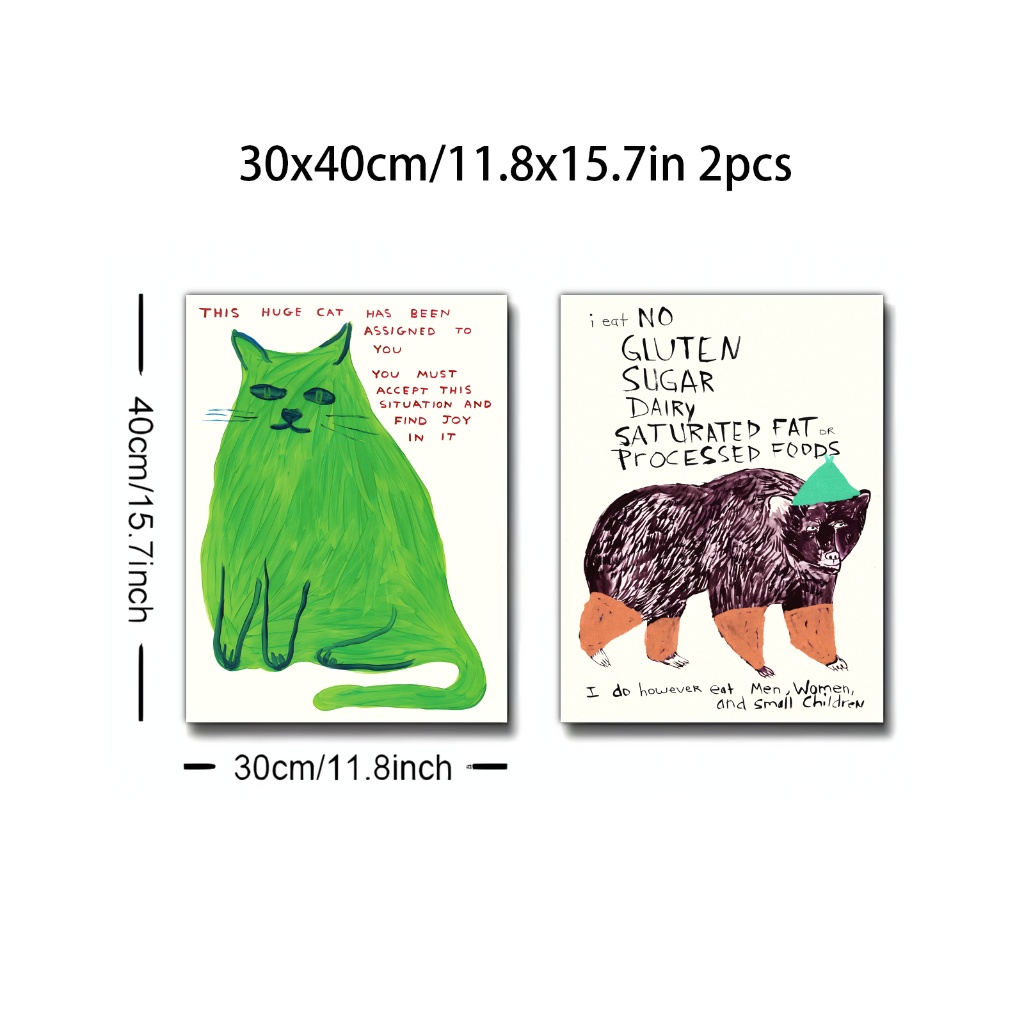 30x40cm/11.8x15.7in 2pcs
THIS HUGE CAT HAS BEEN
ASSIGNED TO
YOU
YOU MUST
ACCEPT THIS
SITUATION AND
FIND JOY
IN IT
i eat NO
GLUTEN
SUGAR
DAIRY
SATURATED FAT OR
PROCESSED FOODS
I do however eat Men, Women,
and small Children
40cm/15.7inch
30cm/11.8inch